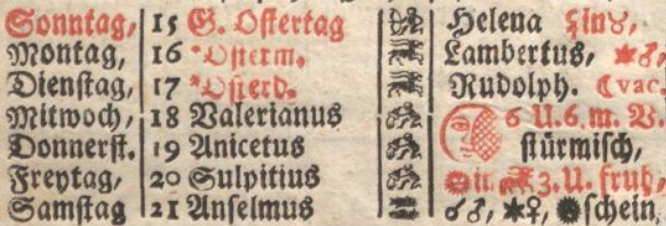 Sonntag, 15 H. Ostertag Helena ♀ in ♉,
Montag, 16 *Osterm. Lambertus, ✶♂,
Dienstag, 17 *Osterd. Rudolph. ☾vac.
Mitwoch, 18 Valerianus 6 U. 6. m. V.
Donnerst. 19 Anicetus stürmisch,
Freytag, 20 Sulpitius in 3. U. fruh,
Samstag 21 Anselmus ☌♂, ✶♀, schein,